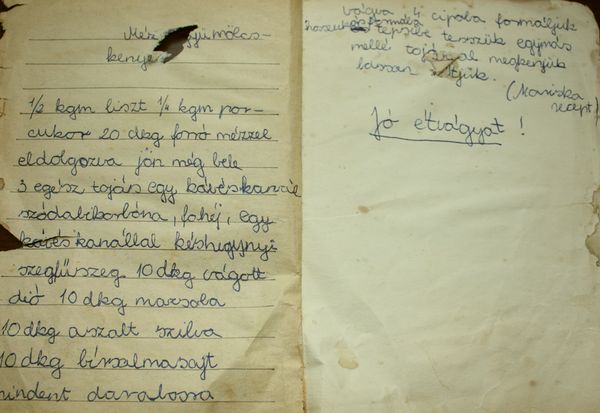 Méz gyümölcs-
kenyér
1/2 kgm liszt 1/4 kgm por-
cukor 20 dkg forró mézzel
eldolgozva jön még bele
3 egész tojás egy kávéskanál
szódabikarbóna, fahéj, egy
kávéskanállal késhegynyi
szegfűszeg 10 dkg vágott
dió 10 dkg mazsola
10 dkg aszalt szilva
10 dkg birsalmasajt
mindent darabossa
vágva 4 cipóba formáljuk
hosszukás formába tepsibe tesszük egymás
mellé tojással megkenjük
lassan sütjük.
(Mariska
recept)
Jó étvágyat!